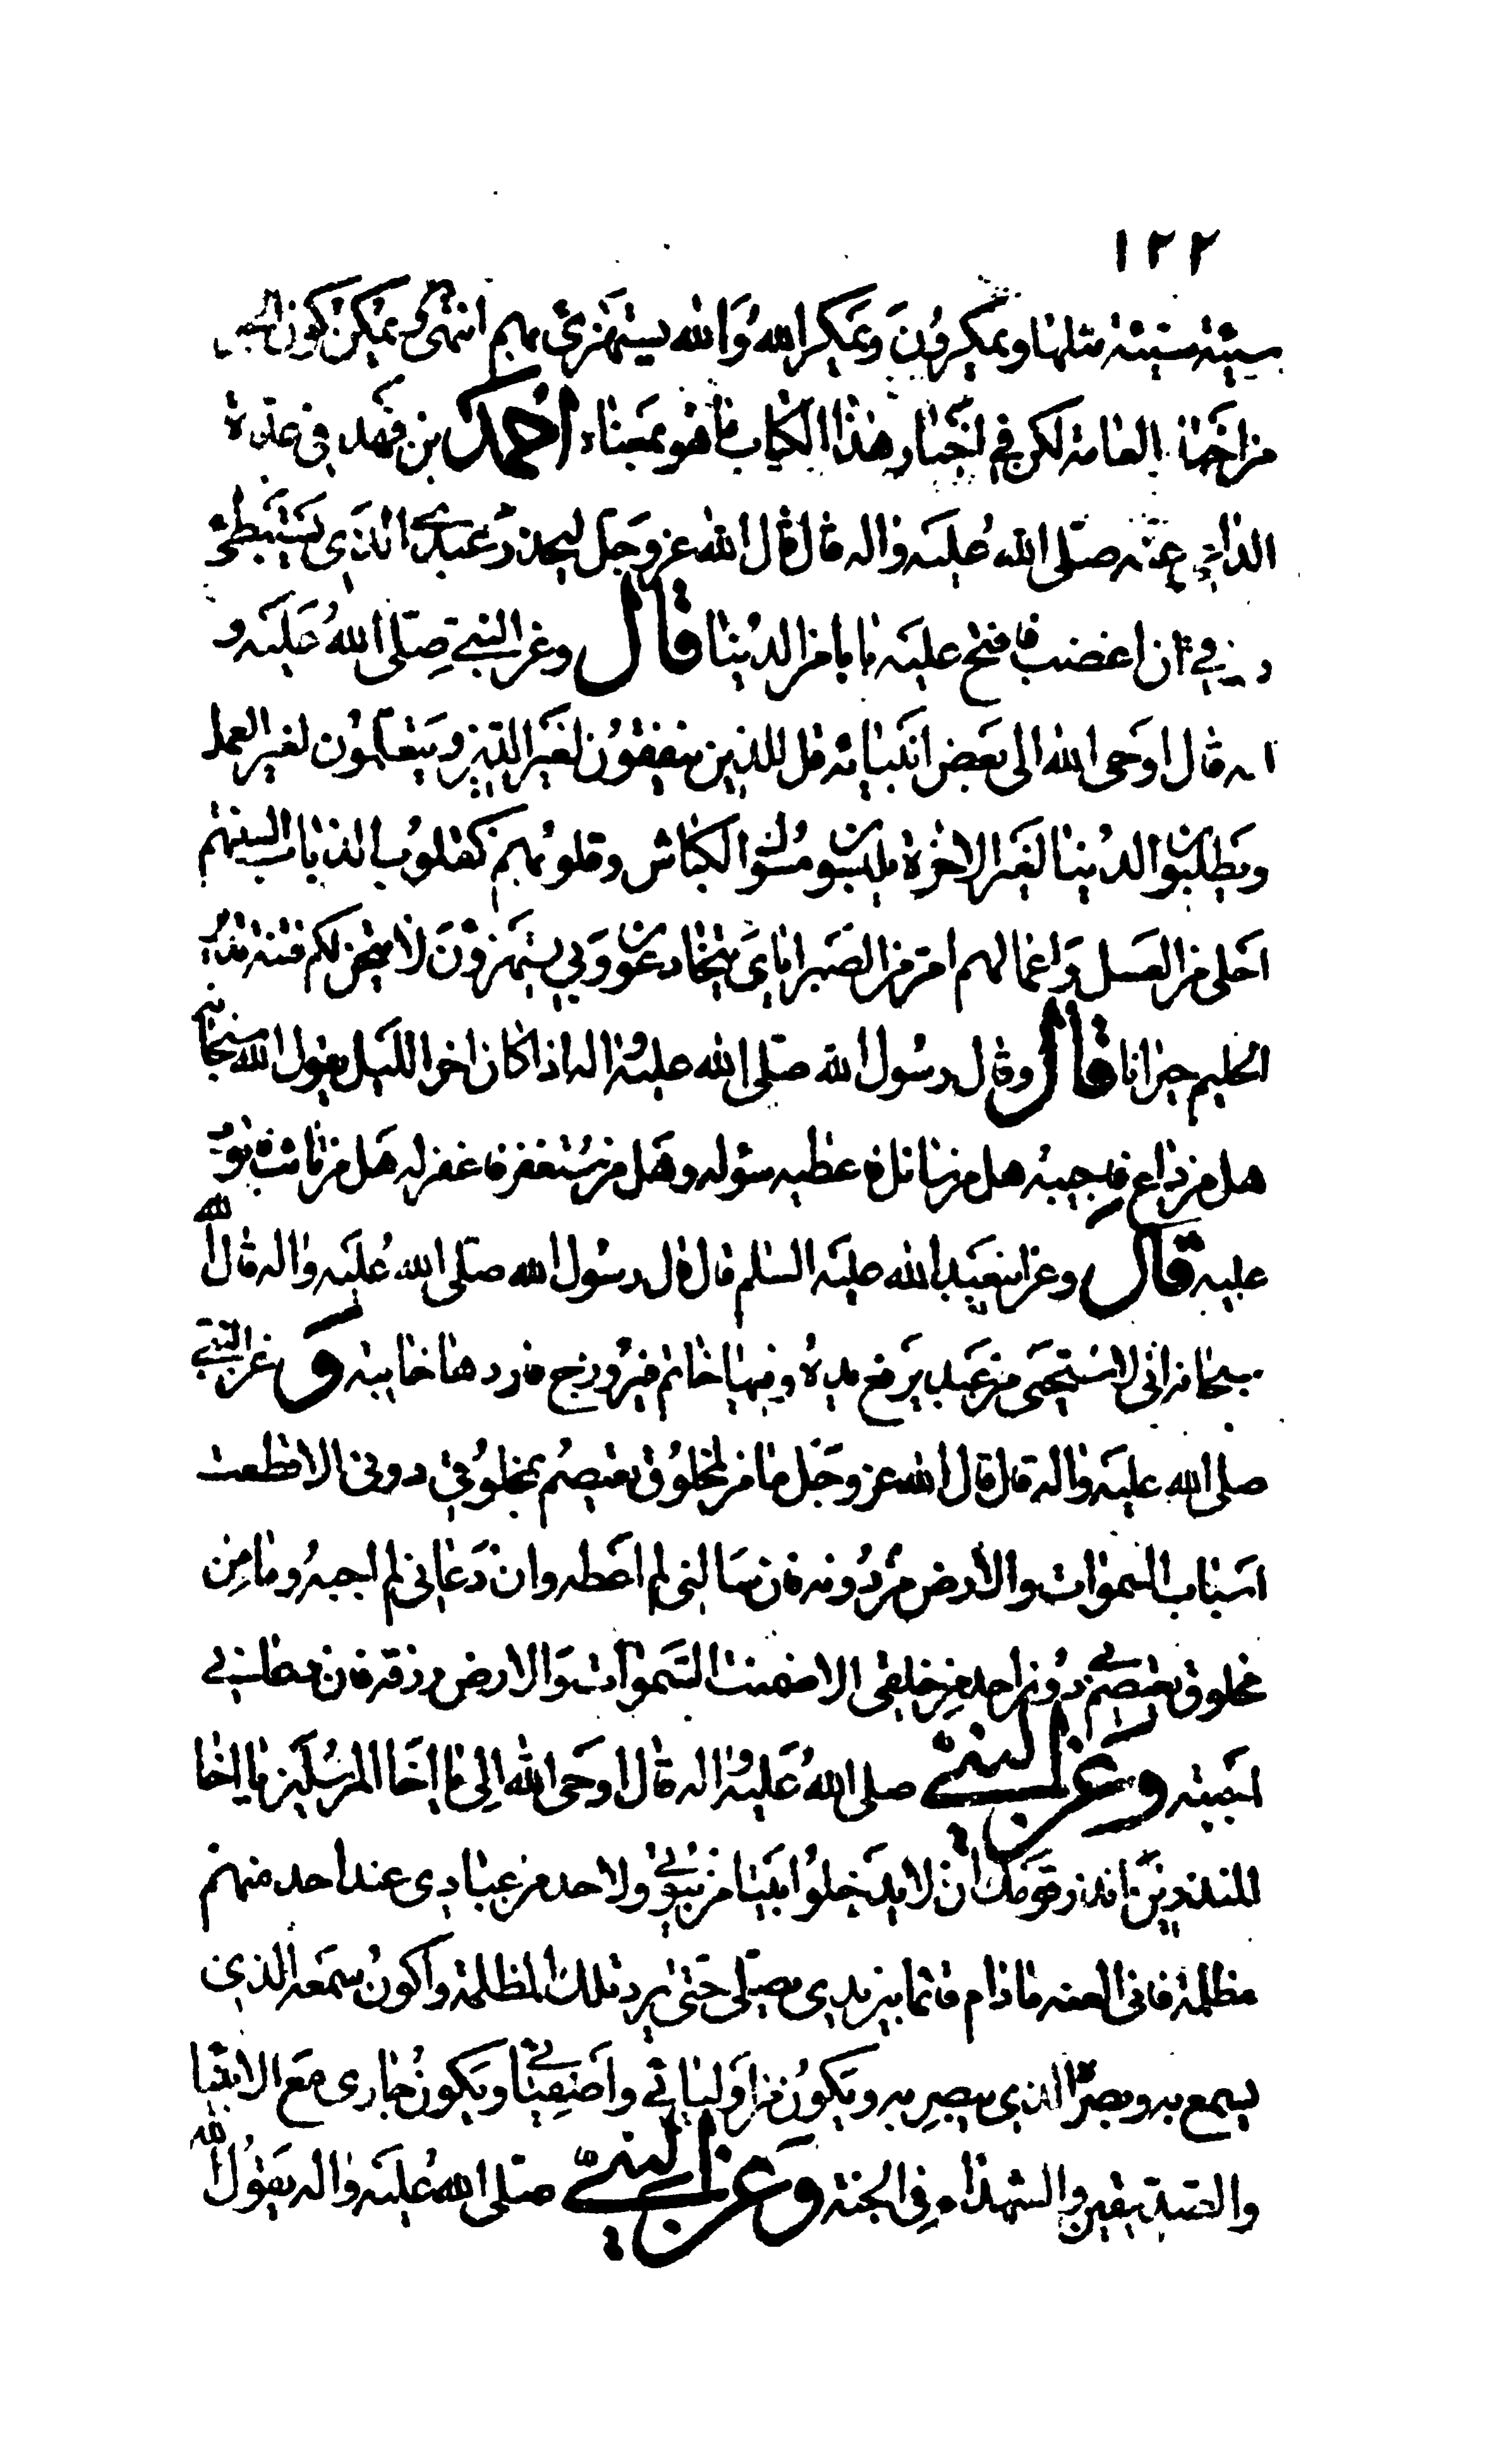 ١٢٢
سيئة سيئة مثلها ويمكرون ويمكر الله وَالله يستهزئ بهم انتهى ويمكن كون
من اخبار العامة لكن في اخبار هذا الكتاب ما هو بمعناه احمد بن فهد في عدة
الداعي عنه صلى الله عليه واله قال قال الله عز وجل ليحذر عبدى الذى يستبطئ
رزقي ان اغضب فافتح عليه بابا من الدنيا قال وعن النبي صلى الله عليه و
اله قال اوحى الله الى بعض انبيائه قل للذين يتفقهون لغير الدين ويتعلمون لغير العمل
ويطلبون الدنيا لغير الاخرة يلبسون مسوك الكباش وقلوبهم كقلوب الذياب السنتهم
احلى من العسل واعمالهم امر من الصبر اياى يخادعون وبي يستهزؤن لاتيحن لكم فتنة تذر
الحليم حيرانا قال وقال رسول الله صلى الله عليه واله اذا كان اخر الليل يقول الله سبحانه
هل من داع فاجيبه هل من سائل فاعطيه سؤله وهل من مستغفر فاغفر له هل من تائب فاتوب
عليه قال وعن ابيعبد الله عليه السلم قال قال رسول الله صلى الله عليه واله قال الله
سبحانه انى لاستحيى من عبد يرفع يده وفيها خاتم فيروزج فاردها خائبة وعن النبي
صلى الله عليه واله قال قال الله عز وجل ما من مخلوق يعتصم بمخلوق دونى الا قطعت
اسباب السموات والارض من دونه فان سالنى لم اعطه وان دعانى لم اجبه وما من
مخلوق يعتصم بي دون احد من خلقى الا ضمنت السموات والارض رزقه فان
اجبته وعن النبي صلى الله عليه واله قال اوحى الله الى يا اخا المرسلين يا اخا
المنذرين انذر قومك ان لا يدخلوا بيتا من بيوتي ولاحد من عبادى عند احد منهم
مظلمة فانى العنه ما دام قائما بين يدى يصلى حتى يرد تلك المظلمة واكون سمعه الذى
يسمع به وبصره الذى يبصر به ويكون من اوليائي واصفيائي ويكون جارى مع الانبياء
والصديقين والشهداء في الجنة وعن النبي صلى الله عليه واله يقول الله